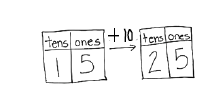 tens ones +10 tens ones
1 5 2 5